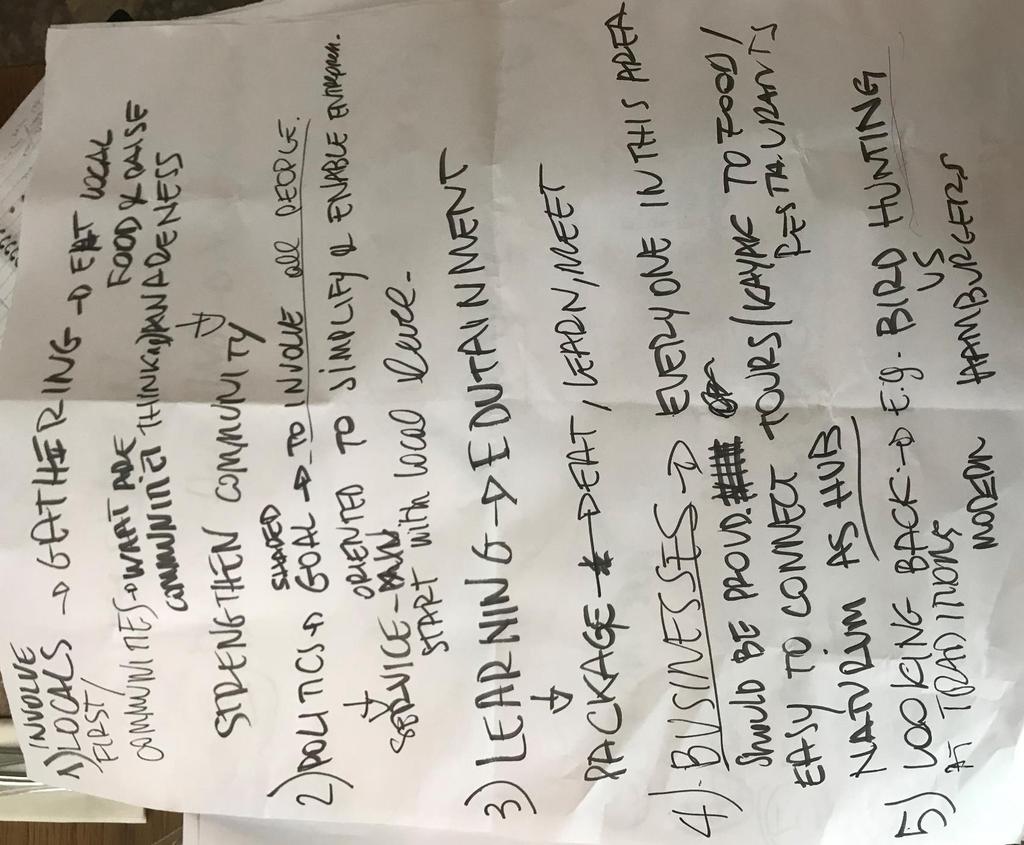 INVOLVE
1) LOCALS → GATHERING → EAT LOCAL
FIRST/ FOOD & RAISE
COMMUNITIES → WHAT ARE THINKING/AWARENESS
COMMUNITIES
STRENGTHEN COMMUNITY
SHARED
2) POLITICS → GOAL → TO INVOLVE all PEOPLE.
ORIENTED TO SIMPLIFY & ENABLE ENTREPREN.
SERVICE -
START with local level.
3) LEARNING → EDUTAINMENT
PACKAGE → EAT, LEARN, MEET
4). BUSINESSES → EVERYONE IN THIS AREA
Should BE PROUD.
EASY TO CONNECT TOURS/KAYAK TO FOOD/
RESTAURANTS
NATURUM AS HUB
5) LOOKING BACK → E.g. BIRD HUNTING
AT TRADITIONS VS
MODERN HAMBURGERS